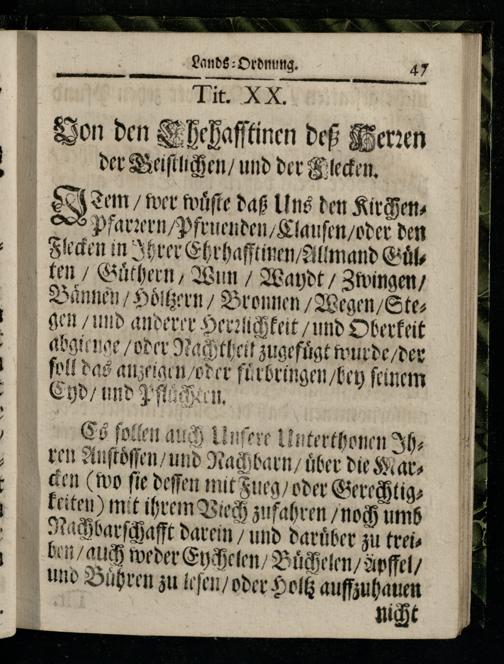 Lands-Ordnung. 47
Tit. XX.
Von den Ehehafftinen deß Herren
der Geistlichen/ und der Flecken.
ITem / wer wüste daß Uns den Kirchen-
Pfarrern/Pfruenden/Clausen/oder den
Flecken in Jhrer Ehrhafftinen/Allmand Gül-
ten / Güthern / Wun / Waydt / Zwingen/
Bännen / Höltzern / Bronnen / Wegen/Ste-
gen / und anderer Herrlichkeit / und Oberkeit
abgienge / oder Nachtheil zugefügt wurde/der
soll das anzeigen/oder fürbringen/bey seinem
Eyd/ und Pflüchten.
Es sollen auch Unsere Unterthonen Jh-
ren Anstössen/und Nachbarn / über die Mar-
cken (wo sie dessen mit Fueg/oder Gerechtig-
keiten) mit ihrem Viech zufahren / noch umb
Nachbarschafft darein / und darüber zu trei-
ben/auch weder Eychelen/ Büchelen/ äpffel/
und Bühren zu lesen/oder Holtz auffzuhauen
nicht